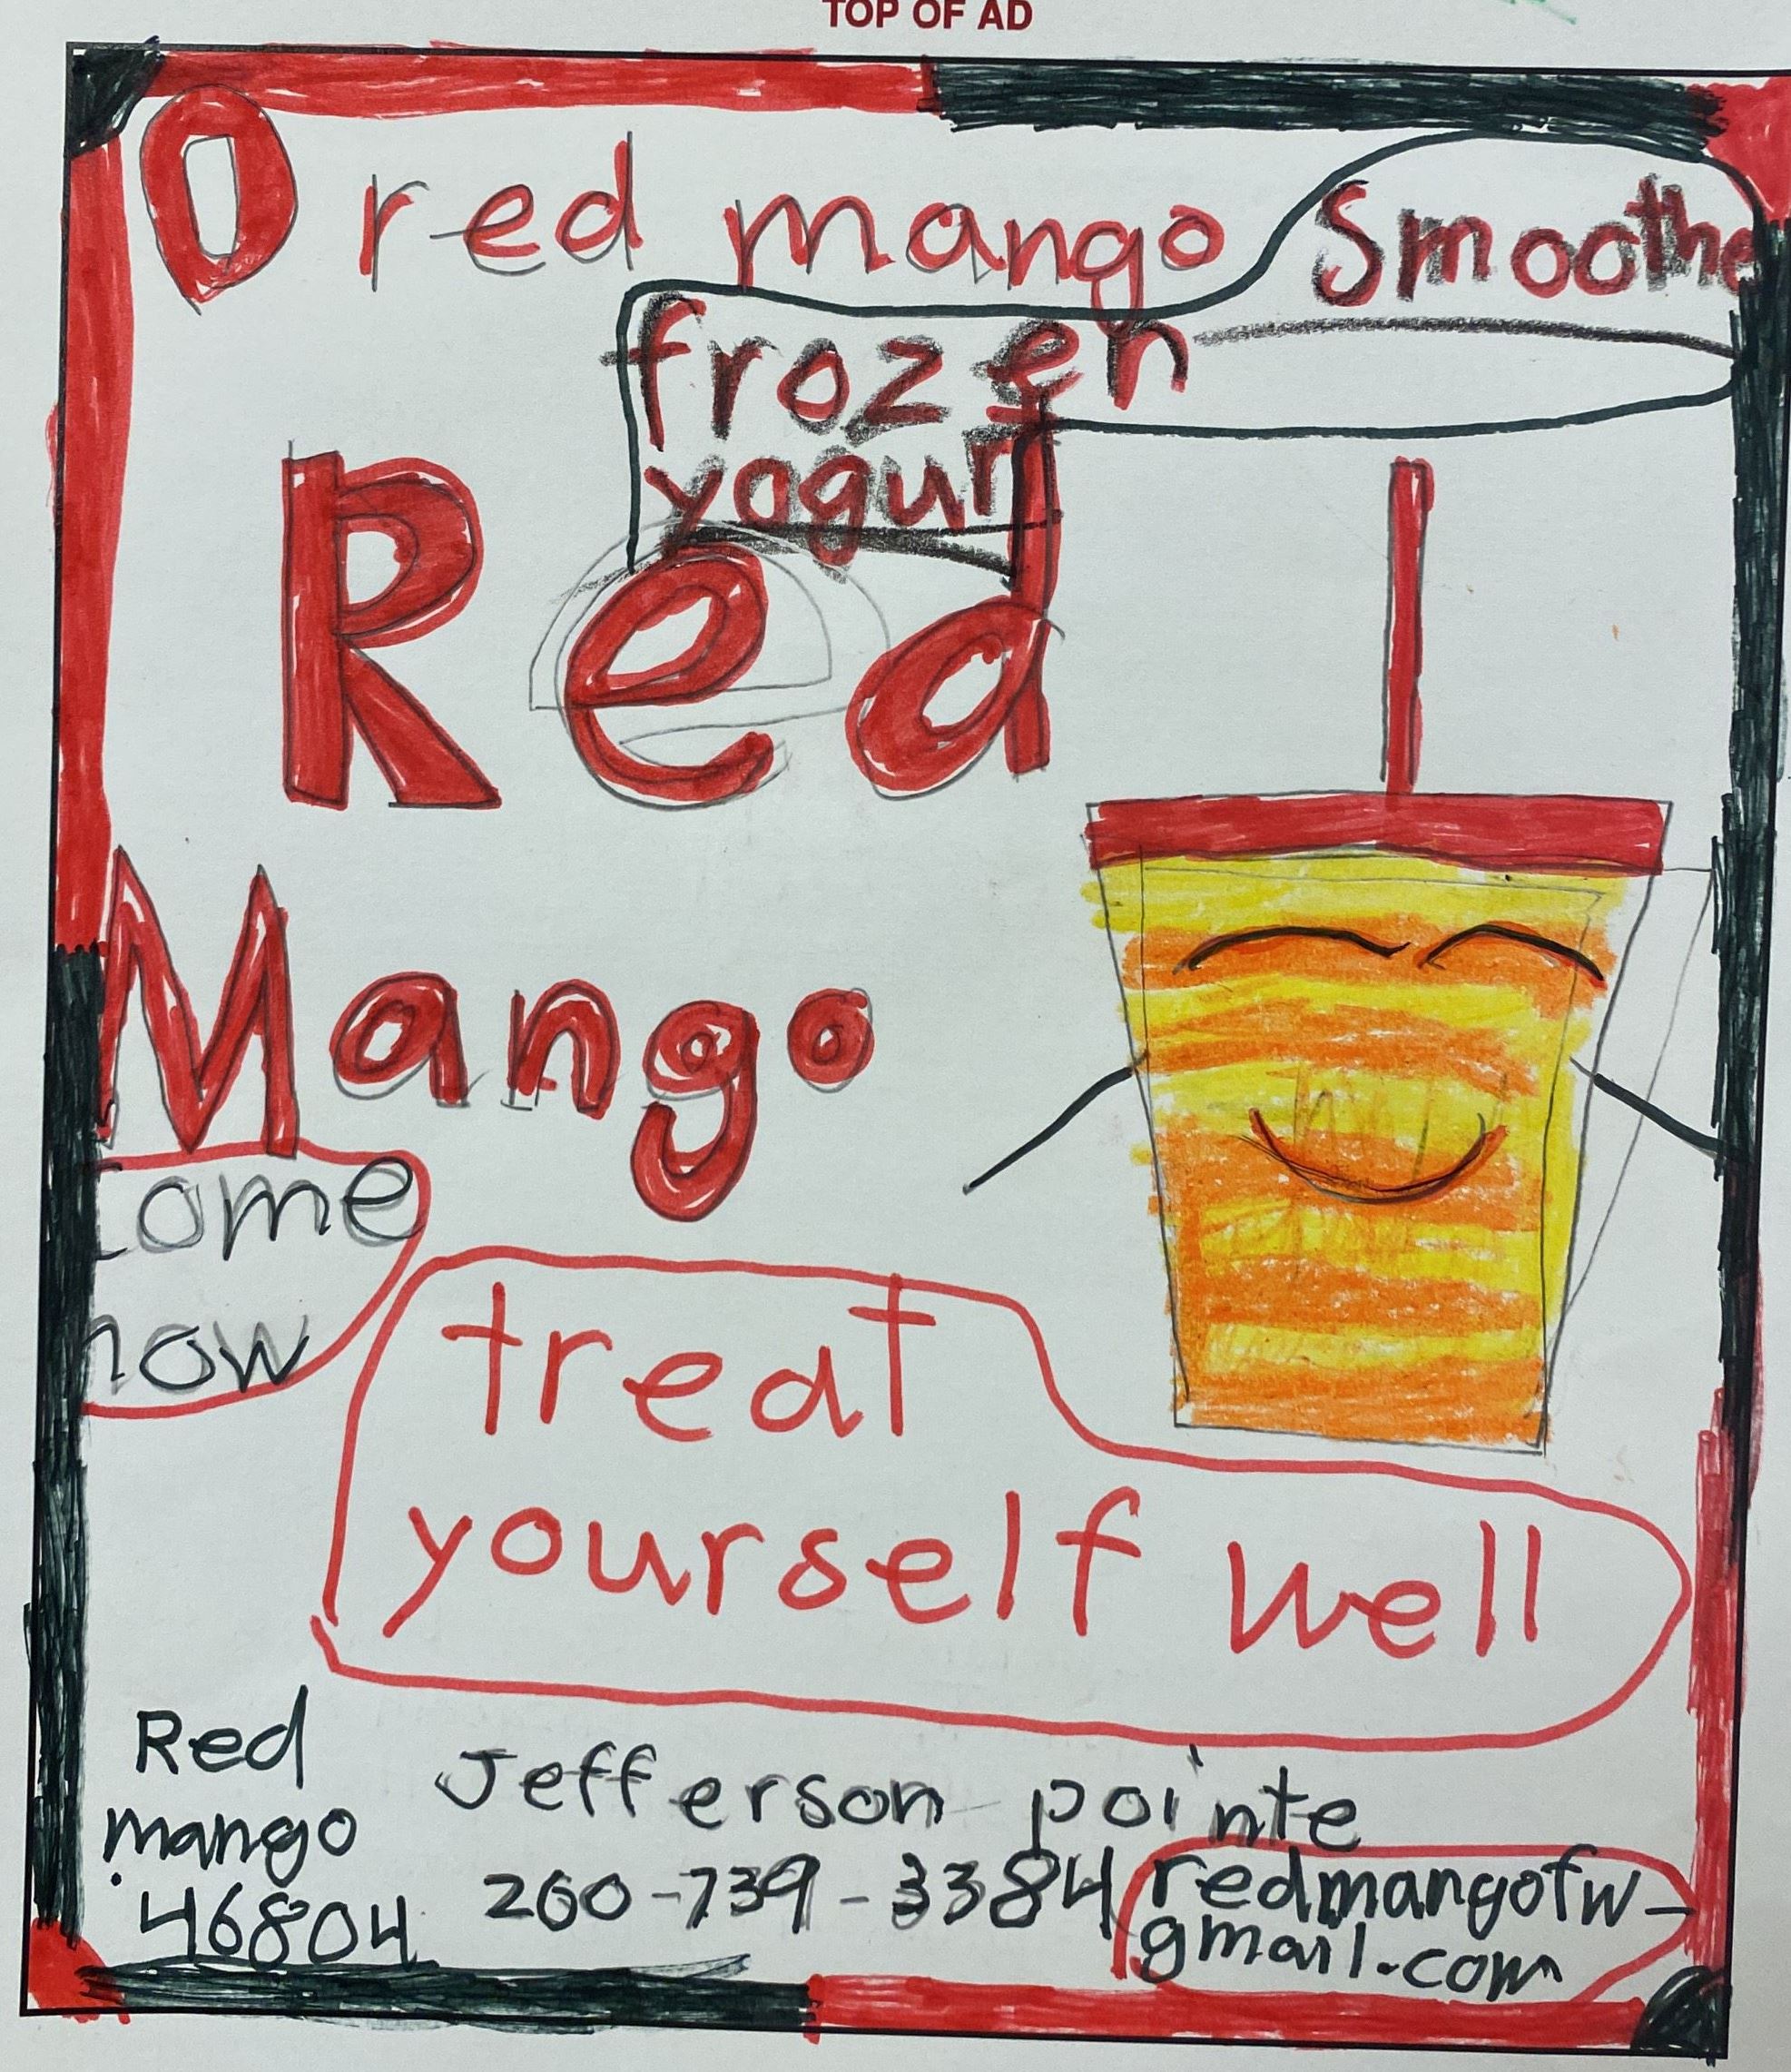 TOP OF AD
O red mango Smoothe
frozen
yogurt
Red
Mango
come
now
treat
yourself well
Red
mango
46804
Jefferson pointe
260-739-3384
redmangofw-
gmail.com